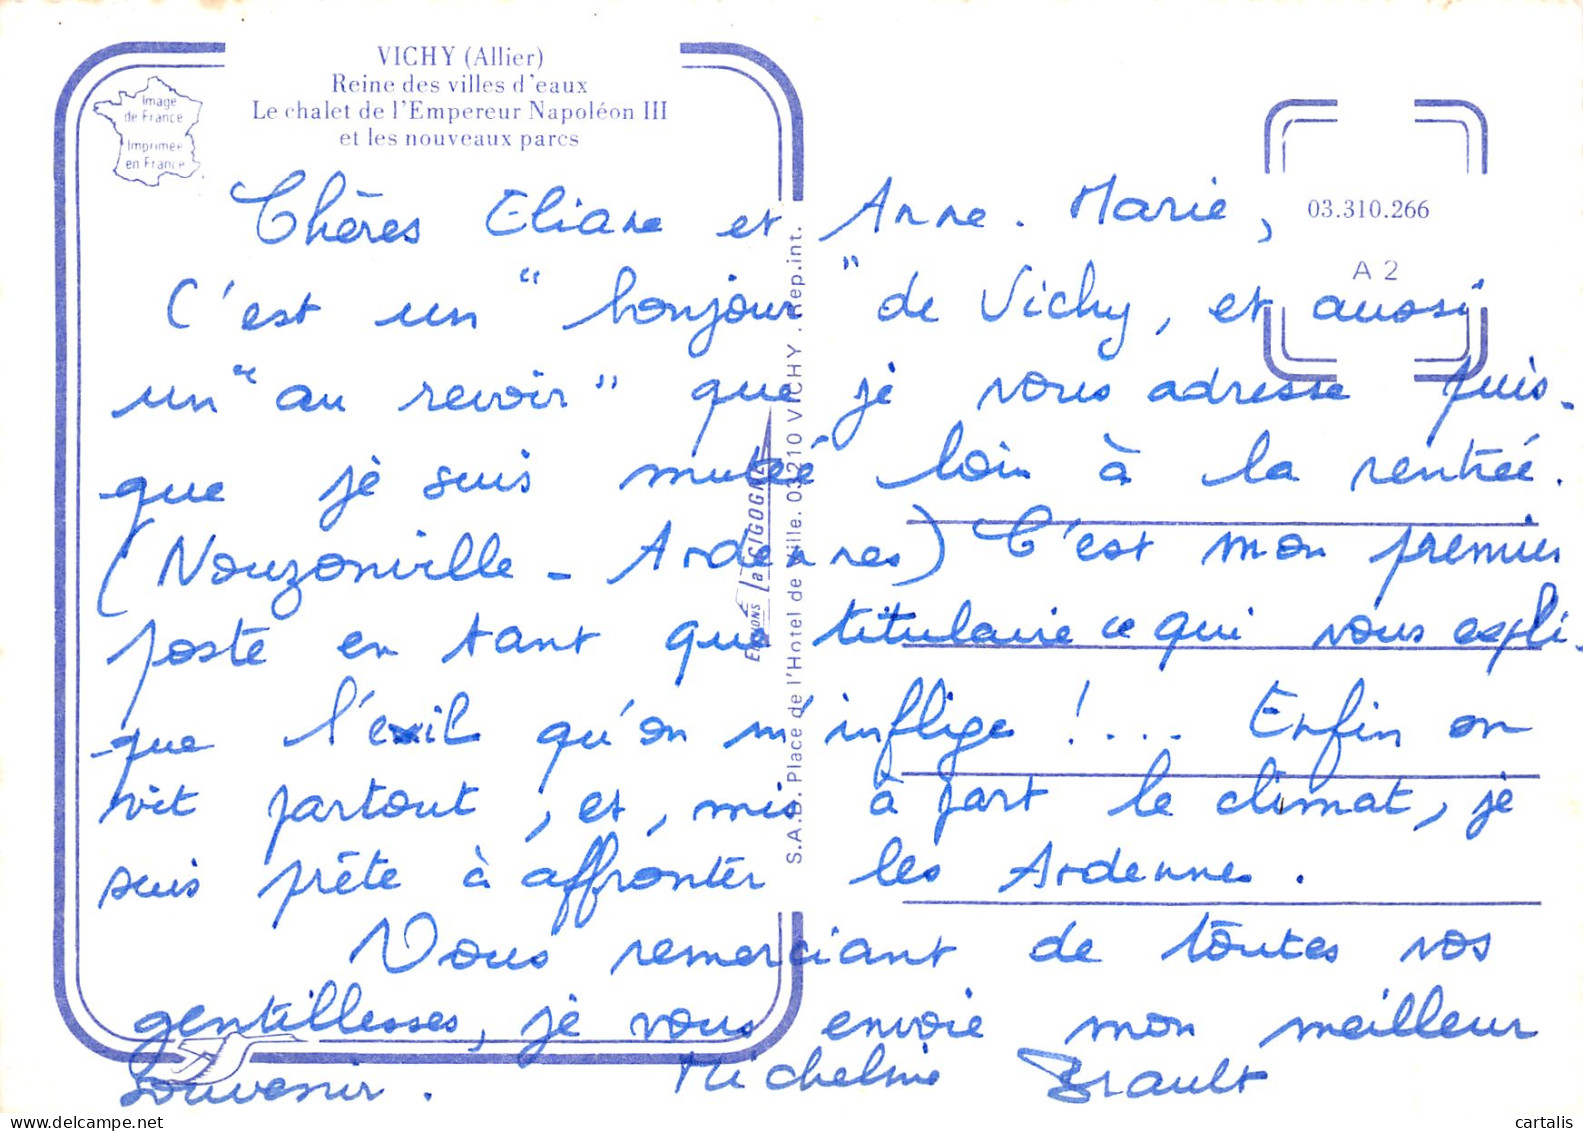 VICHY (Allier)
Reine des villes d'eaux
Le chalet de l'Empereur Napoléon III
et les nouveaux parcs
Image
de France
Imprimée
en France
03.310.266
A 2
Chères Eliane et Anne-Marie,
C'est un "bonjour" de Vichy, et aussi
un "au revoir" que je vous adresse puis-
que je suis mutée loin à la rentrée.
(Nouzonville - Ardennes) C'est mon premier
poste en tant que titulaire ce qui vous expli-
que l'exil qu'on m'inflige !... Enfin on
vit partout, et, mis à part le climat, je
suis prête à affronter les Ardennes.
Vous remerciant de toutes vos
gentillesses, je vous envoie mon meilleur
souvenir. Micheline Brault
Editions La CIGOGNE
S.A.B. Place de l'Hotel de Ville. 03210 VICHY . Rep.int.
https://www.delcampe.net
cartalis